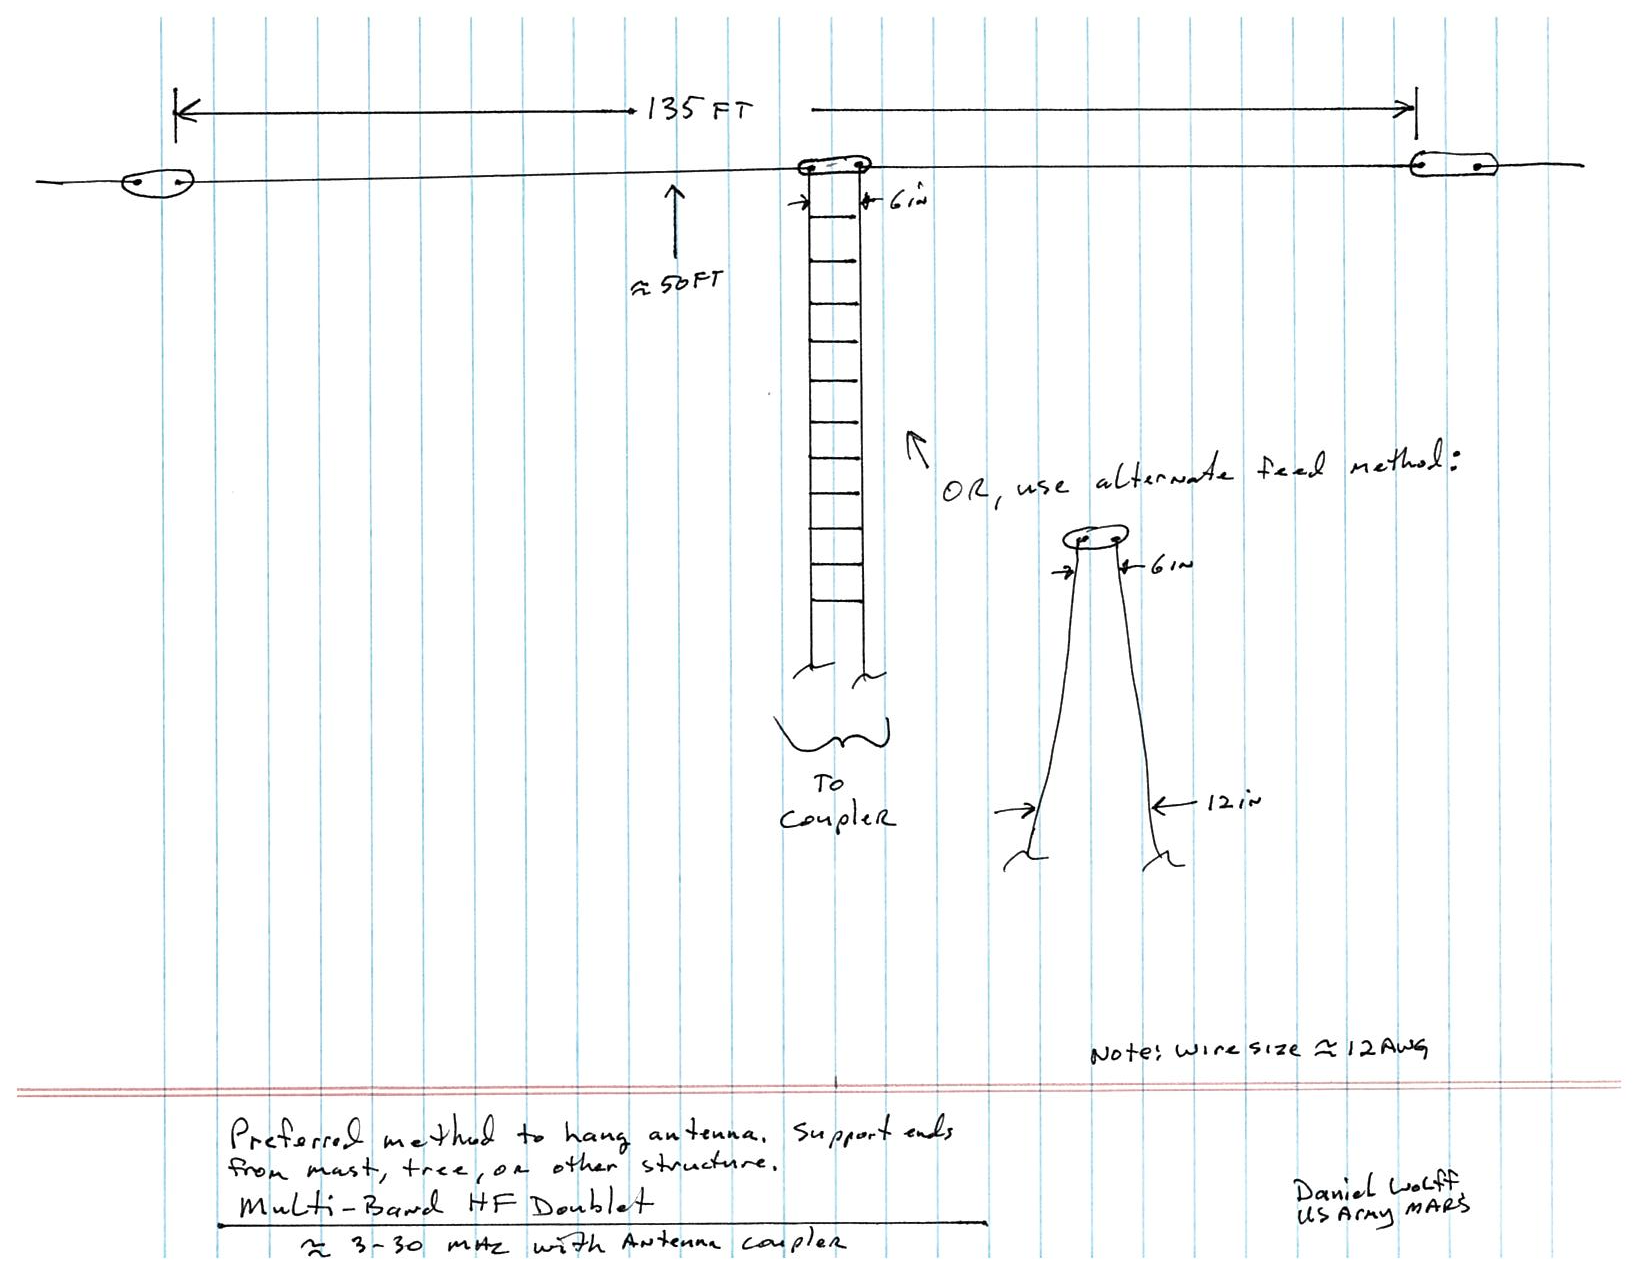 135 FT
6 in
≈ 50 FT
OR, use alternate feed method:
6 IN
12 in
To
Coupler
Note: wire size ≈ 12 AWG
Preferred method to hang antenna. Support ends
from mast, tree, or other structure.
Multi-Band HF Doublet
≈ 3-30 MHz with Antenna coupler
Daniel Wolff
US Army MARS